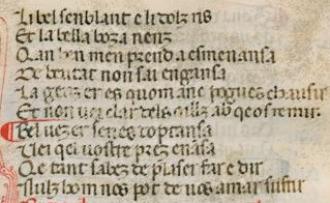 Li bel senblant e li dolz ris
Et la bella boza
Qan ben men prend a esmenansa
De beutat non sai engansa
La genz er es quom anc pogues chausir
Et non uei clar dels oillz ab qeos remir
Bel uezer senes doptansa
Uei qel uostre prez enansa
Qe tant sabez de plaser far e dir
Nulz hom nos pot de uos amar suffrir